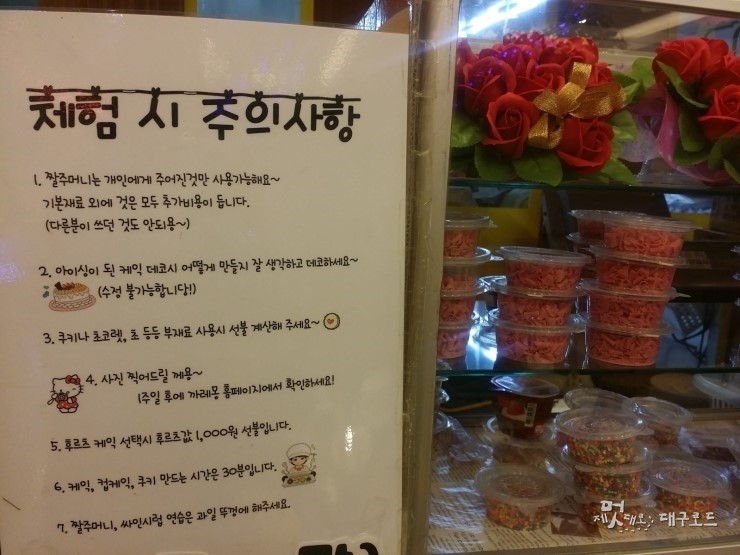 체험 시 주의사항
1. 짤주머니는 개인에게 주어진것만 사용가능해요~
기본재료 외에 것은 모두 추가비용이 듭니다.
(다른분이 쓰던 것도 안되용~)
2. 아이싱이 된 케익 데코시 어떻게 만들지 잘 생각하고 데코하세요~
(수정 불가능합니당!)
3. 쿠키나 초코렛, 초 등등 부재료 사용시 선불 계산해 주세요~
4. 사진 찍어드릴 께용~
1주일 후에 까레몽 홈페이지에서 확인하세요!
5. 후르츠 케익 선택시 후르츠값 1,000원 선불입니다.
6. 케익, 컵케익, 쿠키 만드는 시간은 30분입니다.
7. 짤주머니, 싸인시럽 연습은 과일 뚜껑에 해주세요.
제멋대로 대구로드